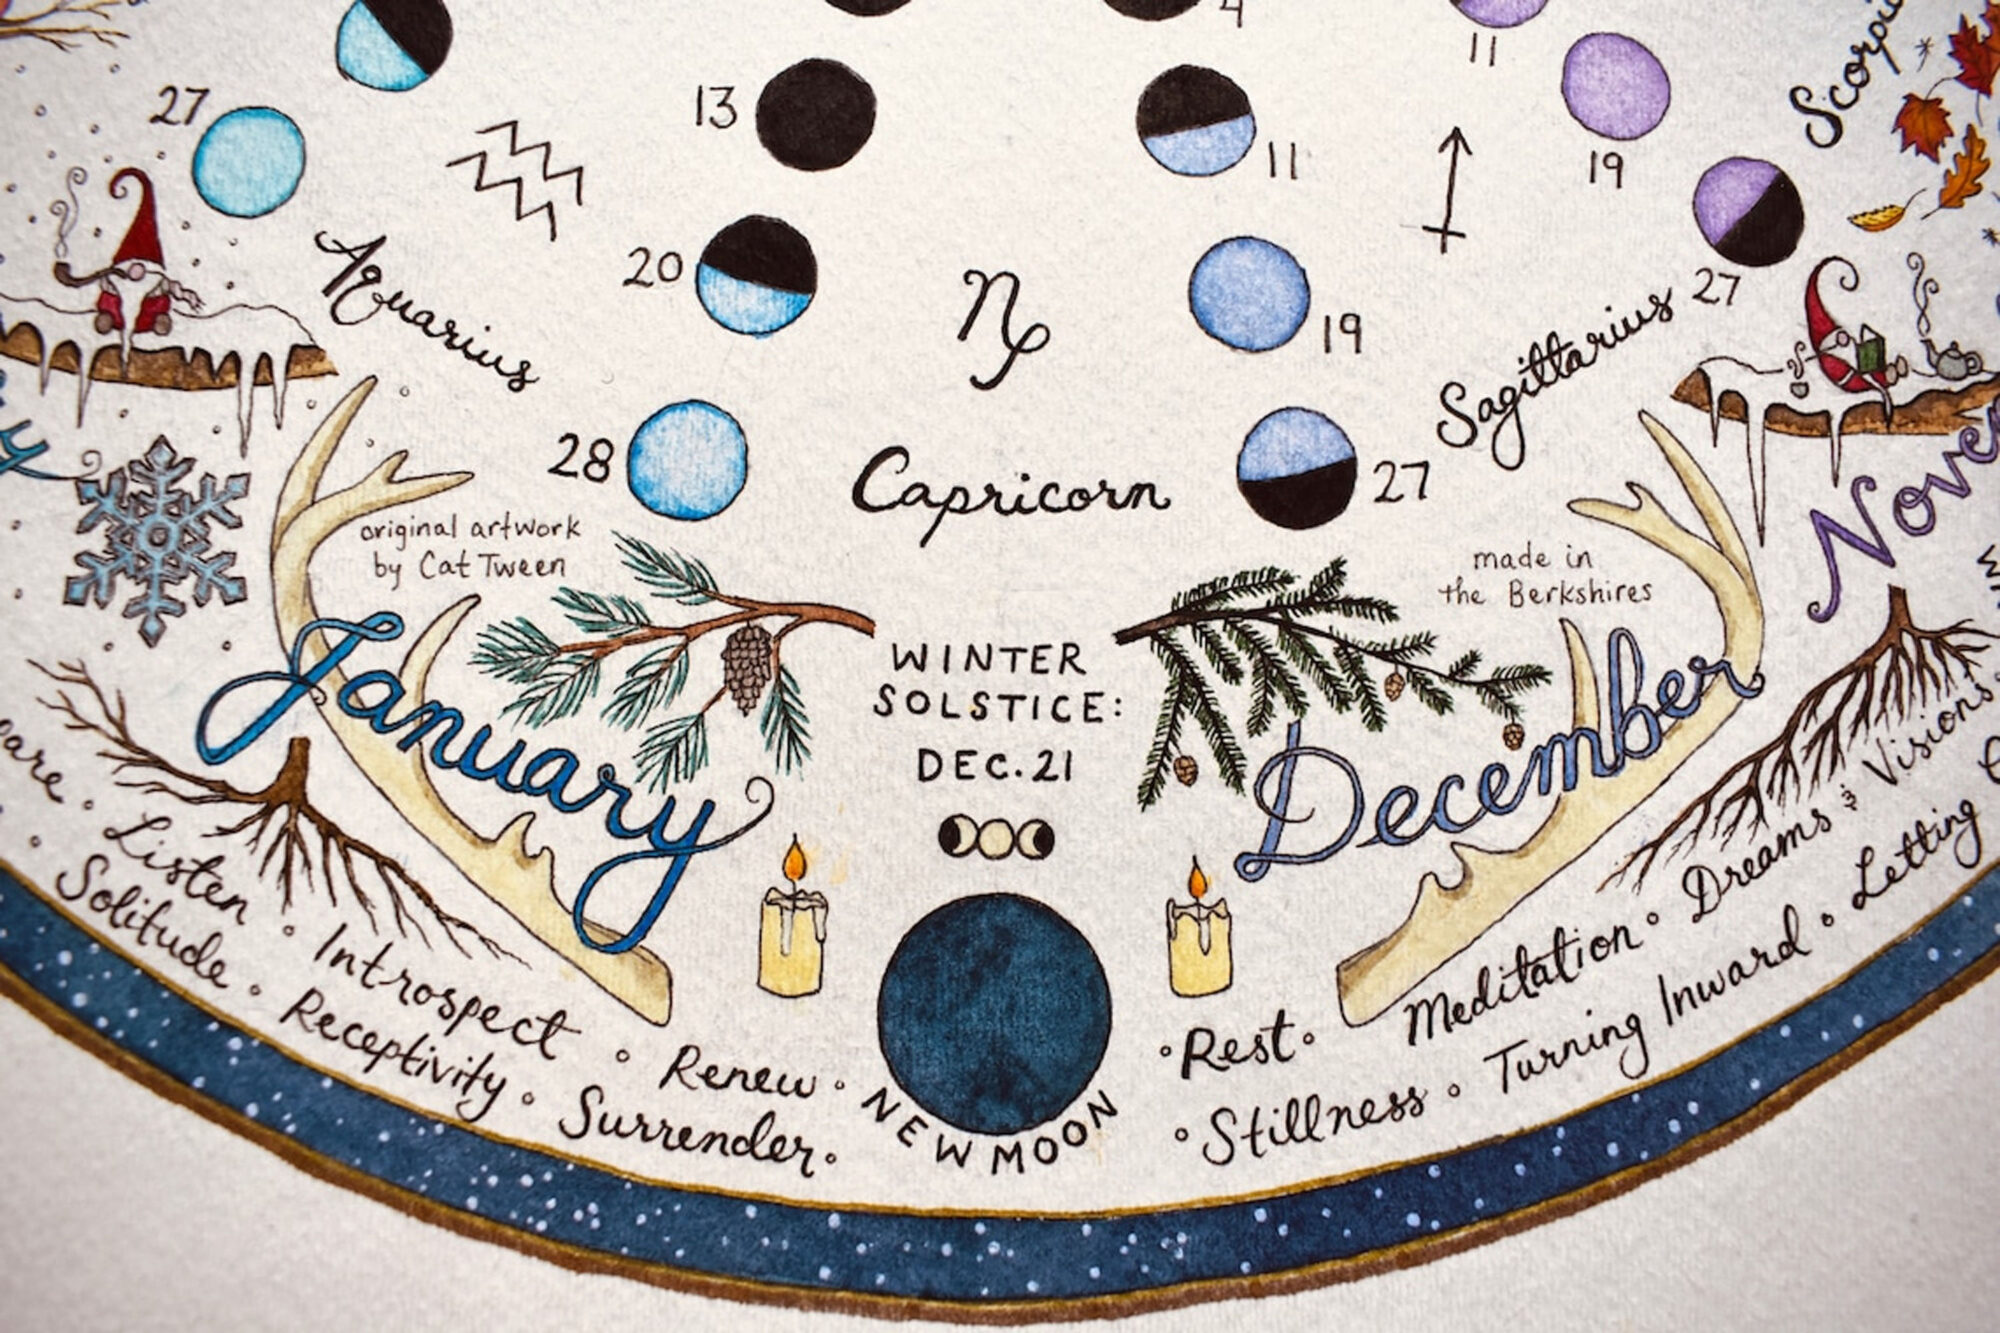 4
11
27
13
11
19
Scorpi
20
19
27
Aquarius
Sagittarius
28
Capricorn
27
original artwork
by Cat Tween
made in
the Berkshires
January
WINTER
SOLSTICE:
DEC. 21
December
Novem
Listen • Introspect • Renew •
Solitude • Receptivity • Surrender •
NEW MOON
• Rest • Meditation • Dreams & Visions
• Stillness • Turning Inward • Letting